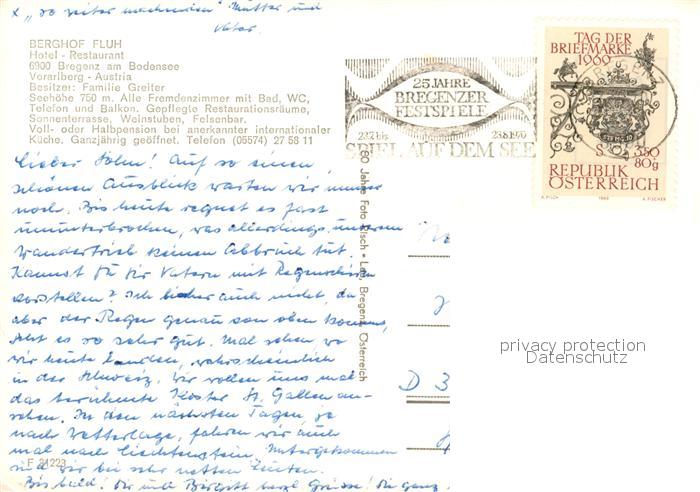 x „so weiter machenden" Mutter und
Vater.
BERGHOF FLUH
Hotel - Restaurant
6900 Bregenz am Bodensee
Vorarlberg - Austria
Besitzer: Familie Greiter
Seehöhe 750 m. Alle Fremdenzimmer mit Bad, WC,
Telefon und Balkon. Gepflegte Restaurationsräume,
Sonnenterrasse, Weinstuben, Felsenbar.
Voll- oder Halbpension bei anerkannter internationaler
Küche. Ganzjährig geöffnet. Telefon (05574) 27 58 11
Lieber Sohn! Auf so einen
schönen Ausblick warten wir immer
noch. Bis heute regnet es fast
ununterbrochen, was allerdings unserem
Wandertrieb keinen Abbruch tut.
Kannst Du Dir Vatern mit Regenschirm
vorstellen? Ich bisher auch nicht, da
aber der Regen genau von oben kommt,
geht es so sehr gut. Mal sehen, wo
wir heute landen, wahrscheinlich
in der Schweiz. Wir wollen uns mal
das berühmte Kloster St. Gallen an-
sehen. In den nächsten Tagen, je
nach Wetterlage, fahren wir auch
mal nach Liechtenstein. Untergekommen
sind wir bei sehr netten Leuten.
Bis bald! Dir und Birgitt herzl. Grüsse! Die ganz
F 31223
60 Jahre Foto Risch • Lau Bregenz Österreich
25 JAHRE
BREGENZER
FESTSPIELE
23.7. bis 23.8.1970
SPIEL AUF DEM SEE
BREGENZ
TAG DER
BRIEFMARKE
1969
S 3.50
80g
REPUBLIK
ÖSTERREICH
A. PILCH 1969 A. FISCHER
D 3
privacy protection
Datenschutz